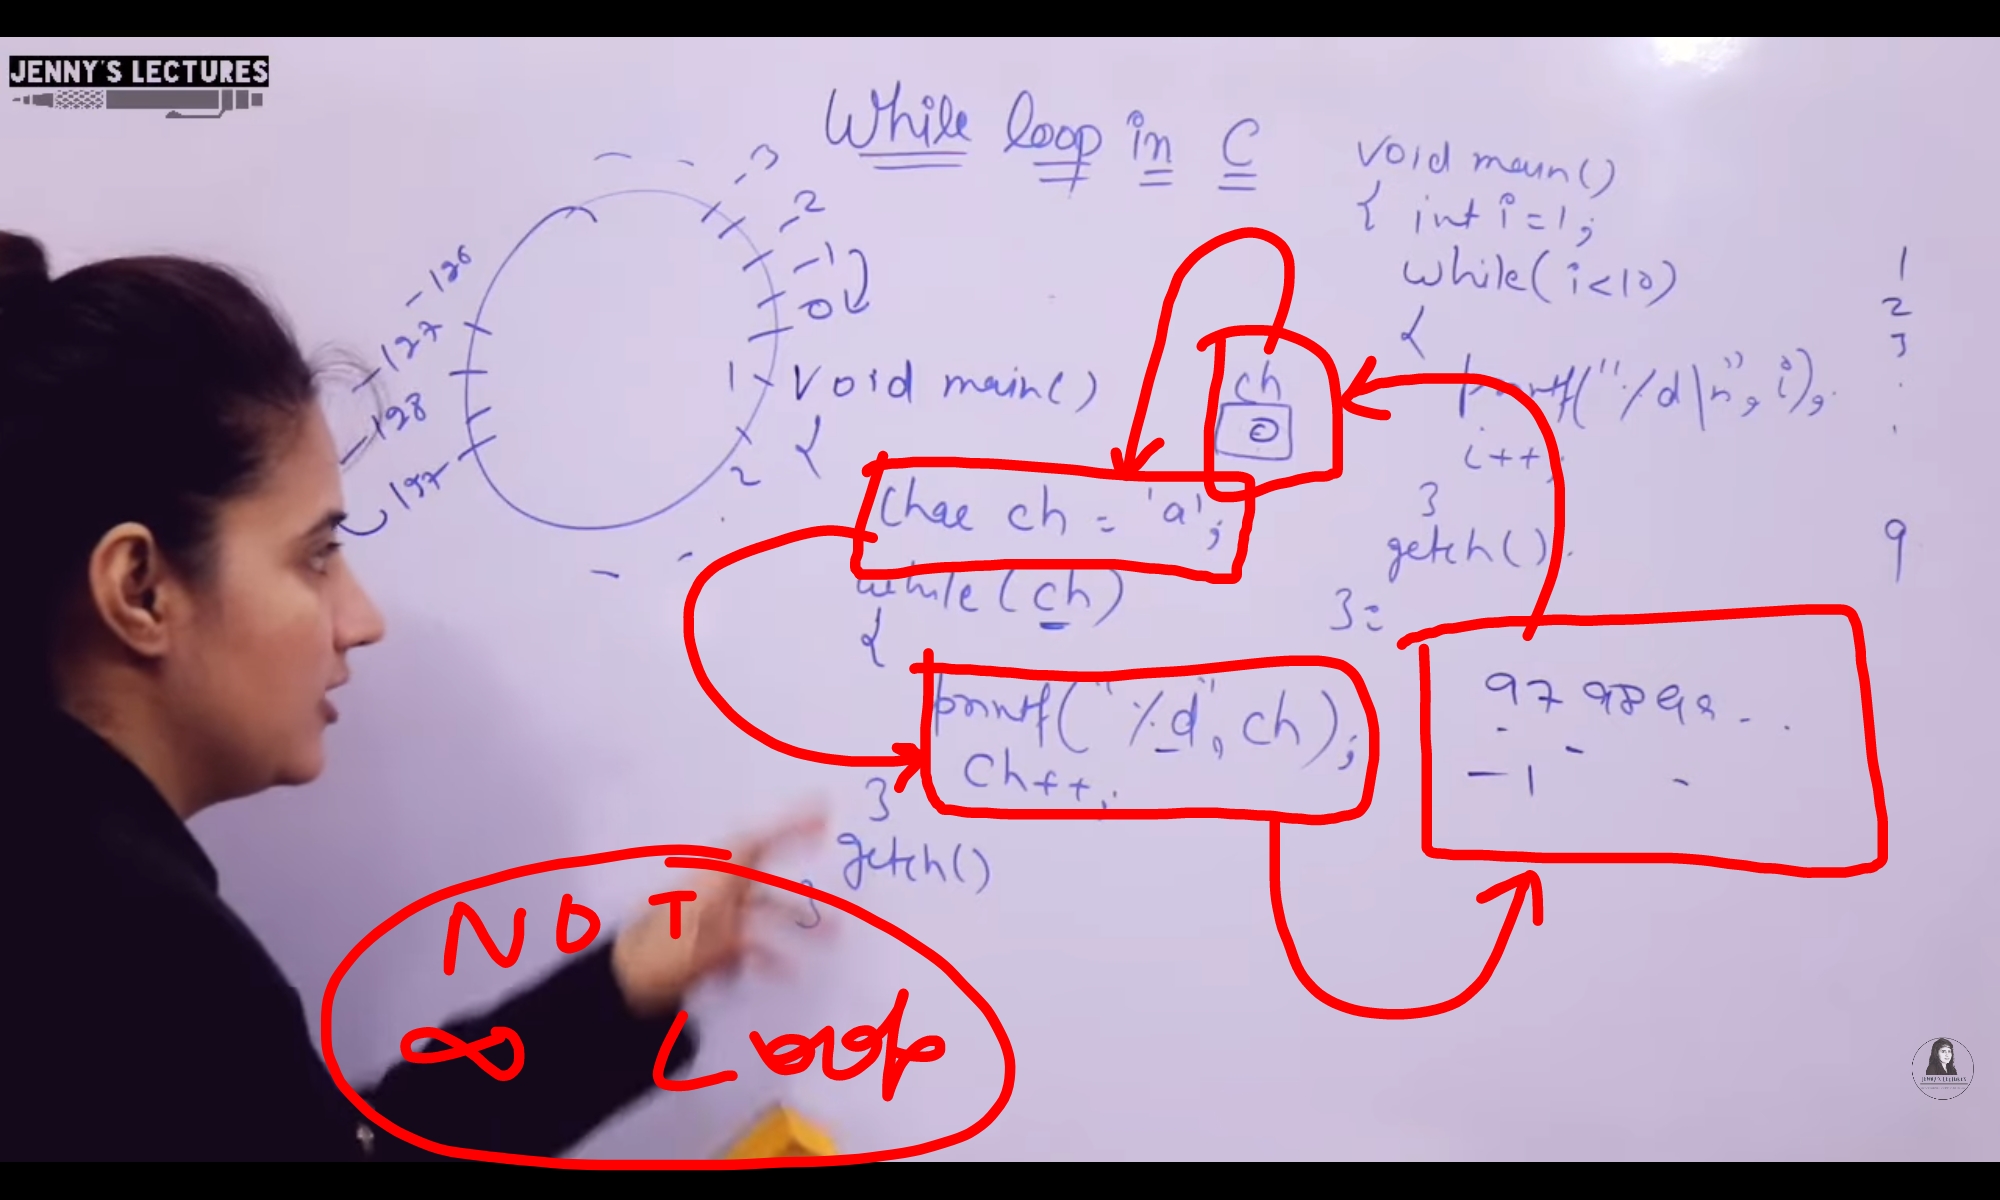 JENNY'S LECTURES
While loop in C
- - -3
-2
-1
0
1
2
- -
-126
-127
-128
127
void main()
{
char ch = 'a';
while(ch)
{
printf("%d", ch);
ch++;
}
getch()
}
ch
0
void main()
{ int i=1;
while(i<10)
{
printf("%d\n", i);
i++;
}
getch();
}
1
2
3
.
.
9
97 98 99 - .
- -
-1 -
NOT
∞ Loop
JENNY'S LECTURES